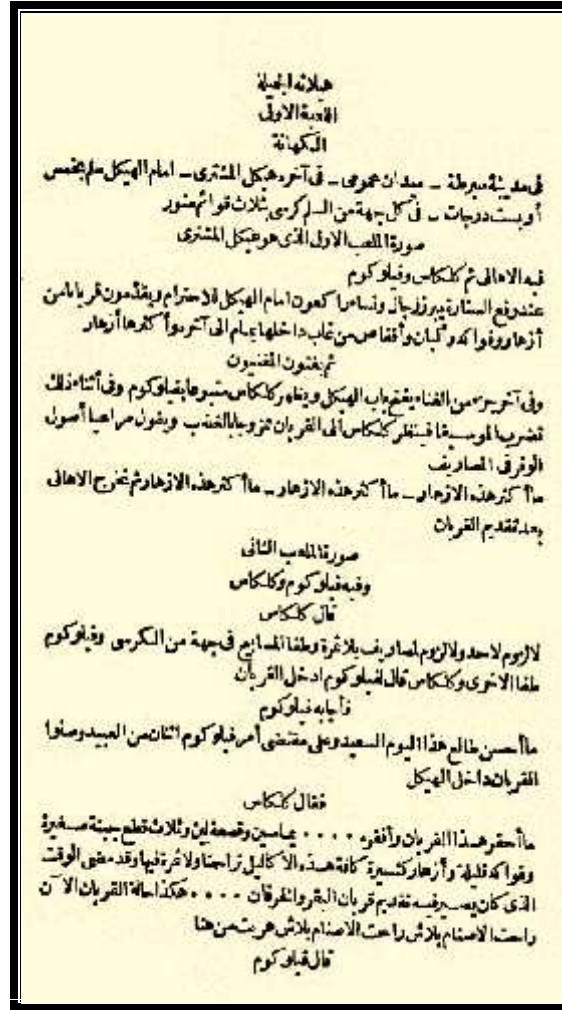 هيلانه الجميلة
اللعبة الاولى
الكهانة
فى مدينة سبرطة ـ ميدان عمومى ـ فى آخره هيكل المشترى ـ امام الهيكل سلم بخمس
أو بست درجات ـ فى كل جهة من السلم كرسى بثلاث قوائم منور
صورة الملعب الاول الذى هو هيكل المشترى
فيه الاهالى ثم كلكاس وفيلوكوم
عند رفع الستارة يبرز رجال ونساء راكعون امام الهيكل للاحترام ويقدمون قربانا من
أزهار وفواكه وألبان وأقفاص من غاب داخلها يمام الى آخره وأكثرها أزهار
ثم يغنون المغنيون
وفى آخر جزء من الغناء يفتح باب الهيكل ويظهر كلكاس متبوعا بفيلوكوم وفى أثناء ذلك
تضرب الموسيقا فينظر كلكاس الى القربان ممزوجا بالغضب ويقول مراعيا أصول
الوفر فى المصاريف
ما أكثر هذه الازهار ـ ما أكثر هذه الازهار ـ ما أكثر هذه الازهار ثم تخرج الاهالى
بعد تقديم القربان
صورة الملعب الثانى
وفيه فيلوكوم وكلكاس
قال كلكاس
لا لزوم لاحد ولا لزوم لمصاريف بلا ثمرة وطفا المصابيح فى جهة من الكرسى وفيلوكوم
طفا الاخرى وكلكاس قال لفيلوكوم ادخل القربان
فأجابه فيلوكوم
ما أحسن طالع هذا اليوم السعيد وعلى مقتضى أمر فيلوكوم اثنان من العبيد وضعوا
القربان داخل الهيكل
فقال كلكاس
ما أحقر هذا القربان وأفقره .... يمامتين وقصعة لبن وثلاث قطع جبنة صغيرة
وفواكه قليلة وأزهار كثيرة كافة هذه الاكاليل تراجنا ولا ثمرة فيها وقد مضى الوقت
الذى كان يصير فيه تقديم قربان البقر والخرفان .... هكذا حالة القربان الآن
راحت الاصنام بلاش راحت الاصنام بلاش هربت من هنا
قال فيلوكوم